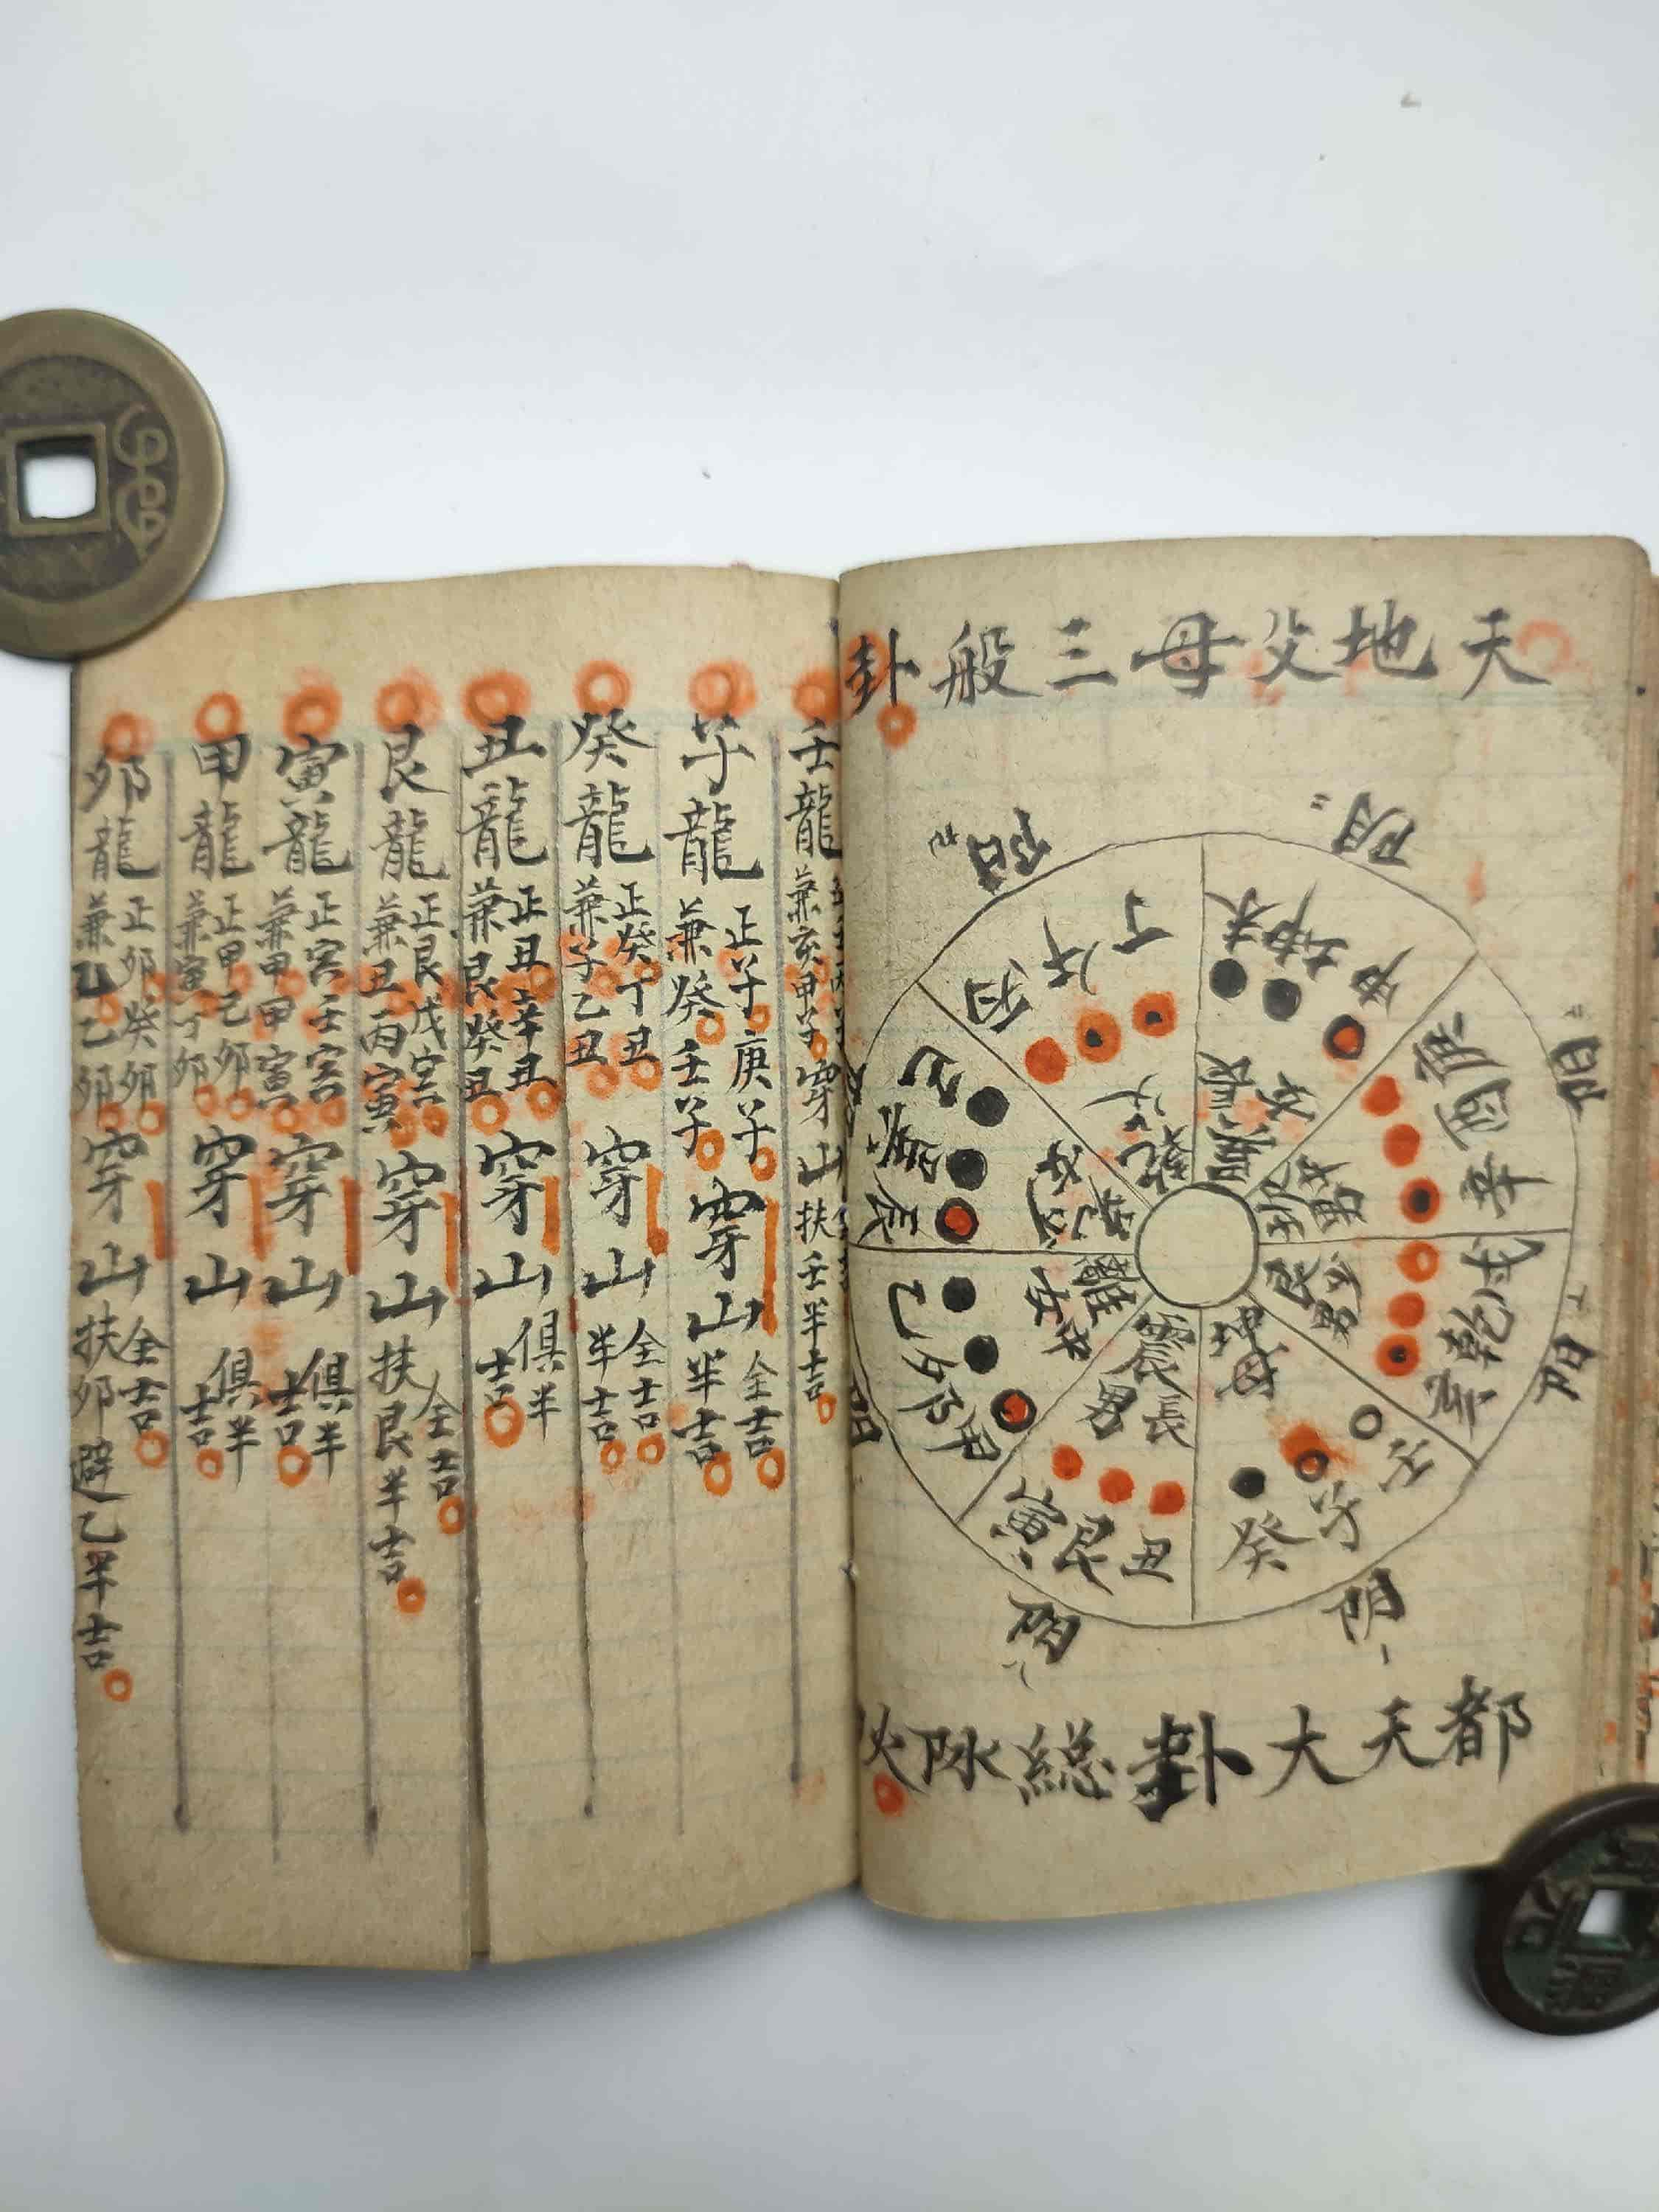 天地父母三般卦
阴二
阳九
阳七
阳六
阴一
阴八
未坤申
庚酉辛
戌乾亥
壬子癸
丑艮寅
甲卯乙
辰巽巳
丙午丁
乾父
巽長女
坎中男
艮少男
坤母
震長男
離中女
兌少女
都天大卦総阴
壬龍
兼亥甲子
穿山
扶壬半吉
子龍
正子庚子
兼癸壬子
穿山
全吉
半吉
癸龍
正癸丁丑
兼子乙丑
穿山
全吉
半吉
丑龍
正丑辛丑
兼艮癸丑
穿山
俱半吉
艮龍
正艮戊寅
兼丑丙寅
穿山
全吉
扶艮半吉
寅龍
正寅壬寅
兼甲甲寅
穿山
俱半吉
甲龍
正甲己卯
兼寅丁卯
穿山
俱半吉
卯龍
正卯癸卯
兼乙乙卯
穿山
全吉
扶卯避乙半吉